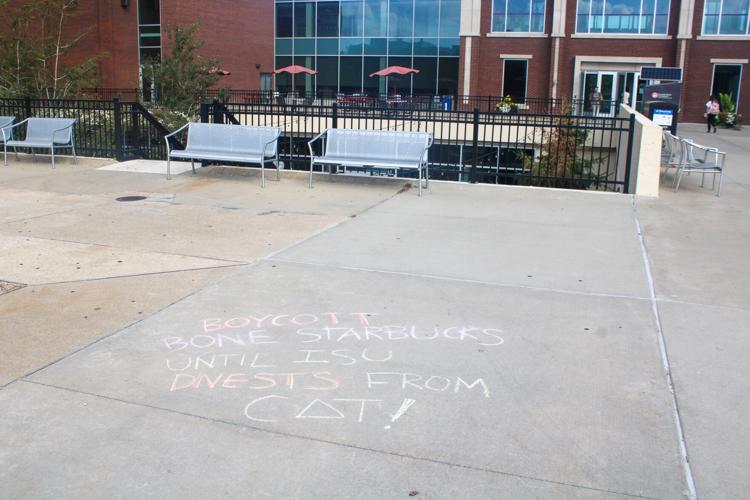 BOYCOTT
BONE STARBUCKS
UNTIL ISU
DIVESTS FROM
CAT!